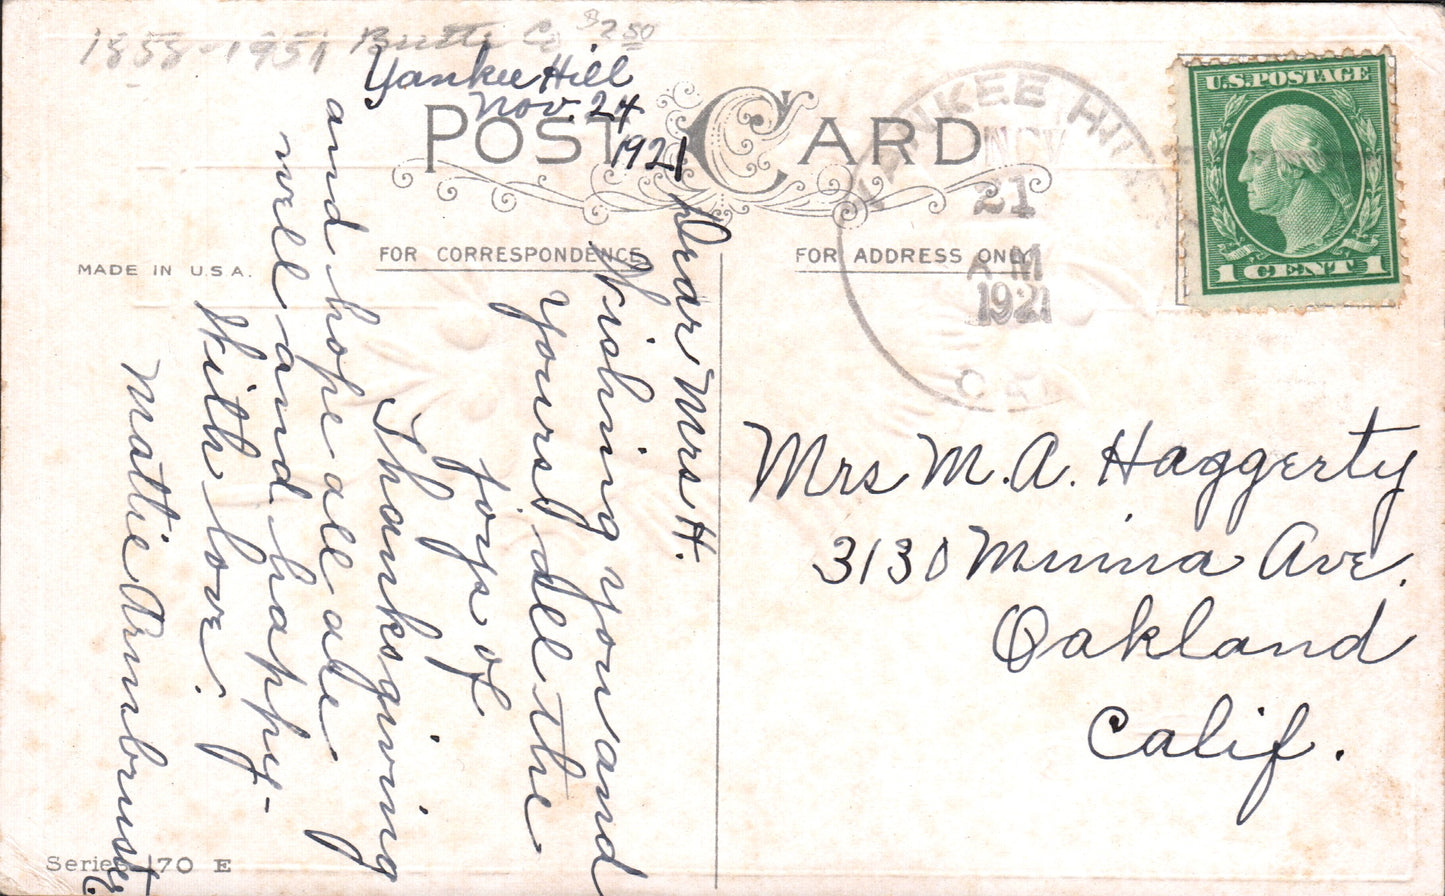 1858-1951 Butte Co $2.50
Yankee Hill
Nov. 24
1921
POST CARD
FOR CORRESPONDENCE
FOR ADDRESS ONLY
MADE IN U.S.A.
Dear Mrs H.
Wishing you and
yours all the
joys of
Thanksgiving
and hope all are
well and happy-
With love.
Mattie Armbruster
YANKEE HILL
NOV
21
AM
1921
CAL
U.S. POSTAGE
1 CENT 1
Mrs M. A. Haggerty
3130 Minna Ave.
Oakland
Calif.
Series 170 E